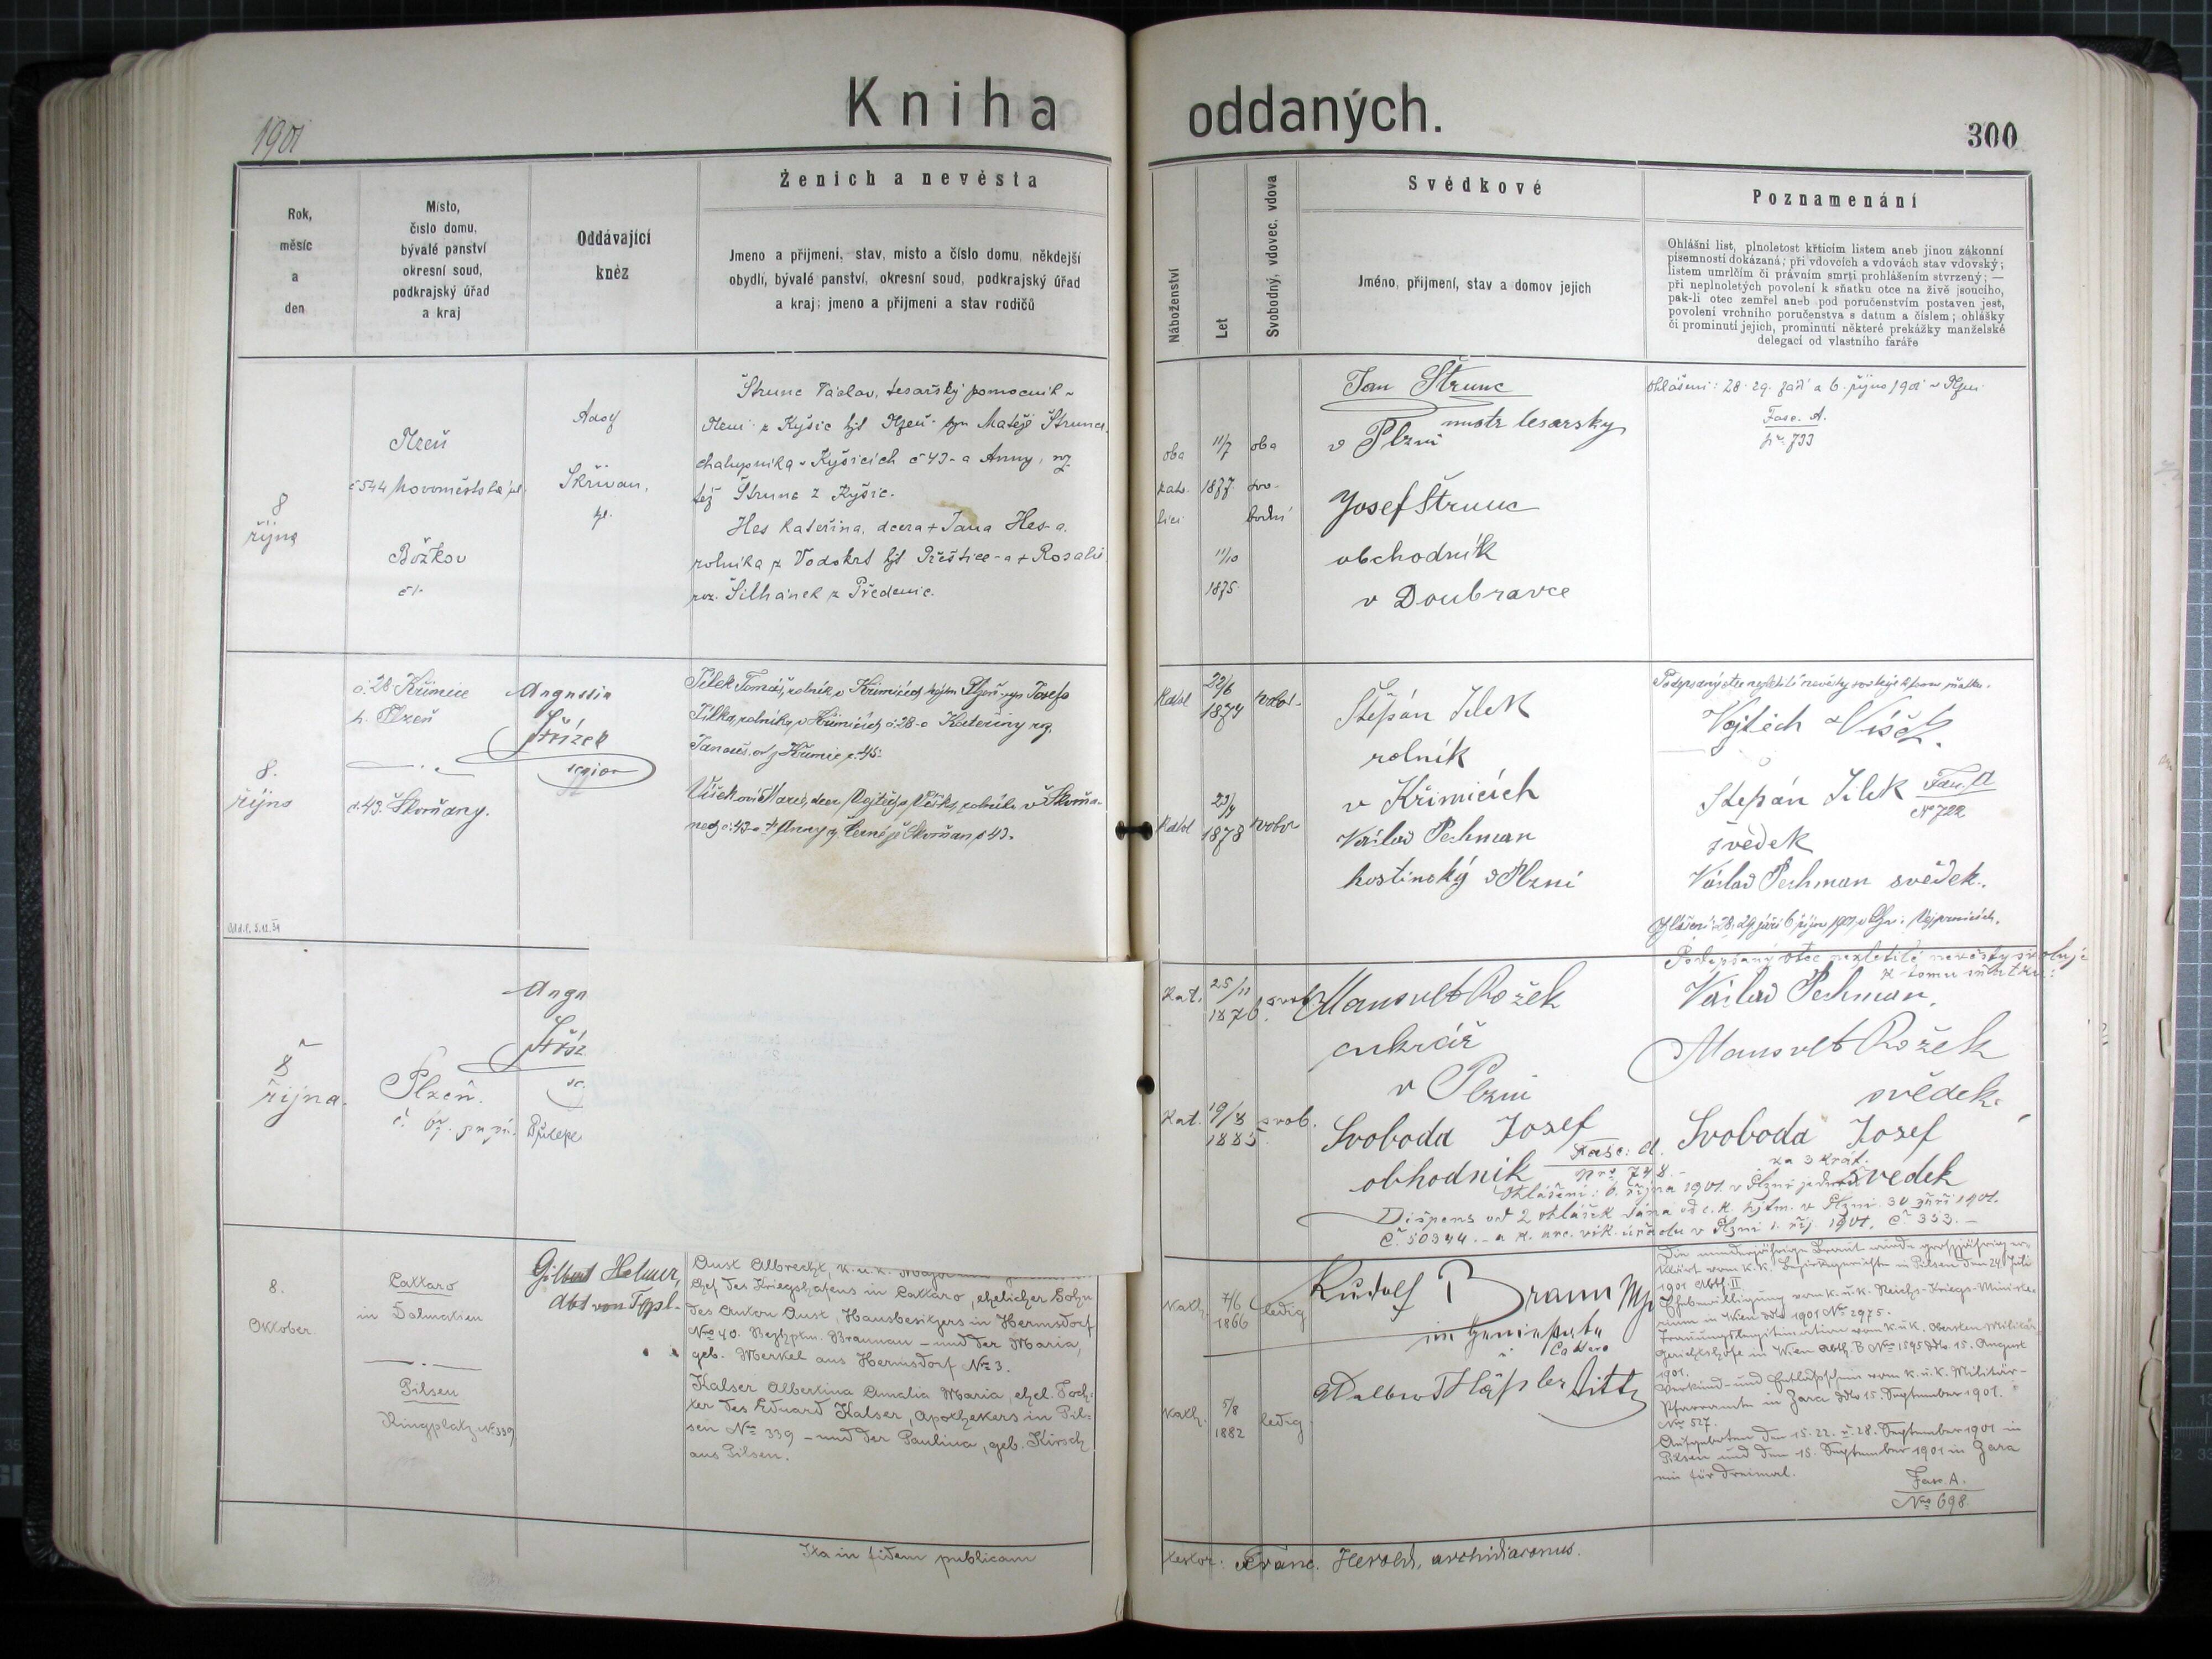 Kniha oddaných.
1901
300
Rok,
měsíc
a
den
Místo,
číslo domu,
bývalé panství
okresní soud,
podkrajský úřad
a kraj
Oddávající
kněz
Ženich a nevěsta
Jmeno a přijmení, stav, místo a číslo domu, někdejší
obydlí, bývalé panství, okresní soud, podkrajský úřad
a kraj; jmeno a přijmení a stav rodičů
Náboženství
Let
Svobodný, vdovec, vdova
Svědkové
Jméno, přijmení, stav a domov jejich
Poznamenání
Ohlášní list, plnoletost křticím listem aneb jinou zákonní
písemností dokázaná; při vdovcích a vdovách stav vdovský;
listem umrlčím či právním smrti prohlášením stvrzený; —
při neplnoletých povolení k sňatku otce na živě jsoucího,
pak-li otec zemřel aneb pod poručenstvím postaven jest,
povolení vrchního poručenstva s datum a číslem; ohlášky
či prominutí jejich, prominutí některé prekážky manželské
delegací od vlastního faráře
8
října
Plzeň
č 544 Novoměstská
Božkov
č 1.
Adolf
Skřivan,
kpl.
Štrunc Václav, tesařský pomocník v
Plzni z Kyšic hjt Plzeň syn Matěje Štrunce,
chalupníka v Kyšicích č 43 a Anny, roz.
též Štrunc z Kyšic.
Hes Kateřina, dcera + Jana Hes-a
rolníka z Vodokrt hjt Přeštice a + Rosalie
roz. Šilhánek z Předenic.
oba
kato-
líci
11/7
1877
11/10
1875
oba
svo-
bodní
Jan Štrunc
mistr tesarsky
v Plzni
Josef Štrunc
obchodník
v Doubravce
Ohlášeni: 28. 29. září a 6. října 1901 v Plzni
Fasc. A.
733
8.
října
č. 28 Křimice
h. Plzeň
č. 43. Skvrňany.
Augustin
Střízek
senior
Jílek Tomáš, rolník v Křimicích hejtm Plzeň syn Josefa
Jílka, rolníka v Křimicích č. 28 a Kateřiny roz.
z Křimic č. 45.
Víšek Marie, dcera Vojtěcha Víška, rolníka v Skvrňa-
nech č. 43 a + Anny r. Černé ze Skvrňan č 43.
Katol
22/6
1874
svobod.
Katol
23/4
1878
svobod
Štěpán Jílek
rolník
v Křimicích
Václav Pechman
hostinský v Plzni
Podepsaný otec nezletilé nevěsty svoluje k tomu sňatku.
Vojtěch Víšek.
Štěpán Jílek
Fasc. A
No 722
svědek
Václav Pechman svědek.
Ohlášeni: 28. 29. září 6 října 1901 v Plzni: Vejprnicích.
8
října.
Plzeň.
Kat.
25/11
1876
svob
Kat.
19/3
1885
svob.
Mansvet Rožek
cukrář
v Plzni
Svoboda Josef
obhodnik
Fasc: A.
Nro 748.
Podepsaný otec nezletilé nevěsty svoluje
k tomu sňatku:
Václav Pechman.
Mansvet Rožek
svědek.
Svoboda Josef
za 3 krát.
svědek
Ohlášení: 6. října 1901. v Plzni jednou
Dispens od 2 ohlášek dána od c. k. hejtm. v Plzni 30 září 1901.
č. 50344. a k. arc. vik. úřadu v Plzni 1. říj. 1901. č. 353.
8.
Oktober
Cattaro
in Dalmatien
Pilsen
Ringplatz No 339
Gilbert Helmer,
Abt von Tepl.
Aust Albrecht, k. u. k. Major
Chef des Kriegshafens in Cattaro, ehelicher Sohn
des Anton Aust, Hausbesitzers in Hermsdorf
Nro 40. Bezhptm. Braunau - und der Maria,
geb. Merkel aus Hermsdorf No 3.
Kalser Albertina Amalia Maria, ehel. Toch-
ter des Eduard Kalser, Apothekers in Pil-
sen No 339 - und der Paulina, geb. Kirsch
aus Pilsen.
Kath.
7/6
1866
ledig
Kath.
5/8
1882
ledig
Rudolf Braun
im Geniestabe
Cattaro
Die minderjährige Braut wurde großjährig er-
klärt vom k. k. Bezirksgerichte in Pilsen den 24. Juli
1901 Abth. II
Ehebewilligung vom k. u. k. Reichs-Kriegs-Ministe-
rium in Wien ddo 1901 No 2975.
Trauungslegitimation vom k. u. k. Obersten Militär-
Gerichtshofe in Wien Abth. B No 1595 ddo. 15. August
1901.
Verkünd- und Entlaßschein vom k. u. k. Militär-
Pfarramte in Zara ddo 15. September 1901.
No 527.
Aufgeboten den 15. 22. u. 28. September 1901 in
Pilsen und den 15. September 1901 in Zara
ein für dreimal.
Fasc A.
Nro 698
Ita in fidem publicam
testor: Franc. Herold, archidiaconus.